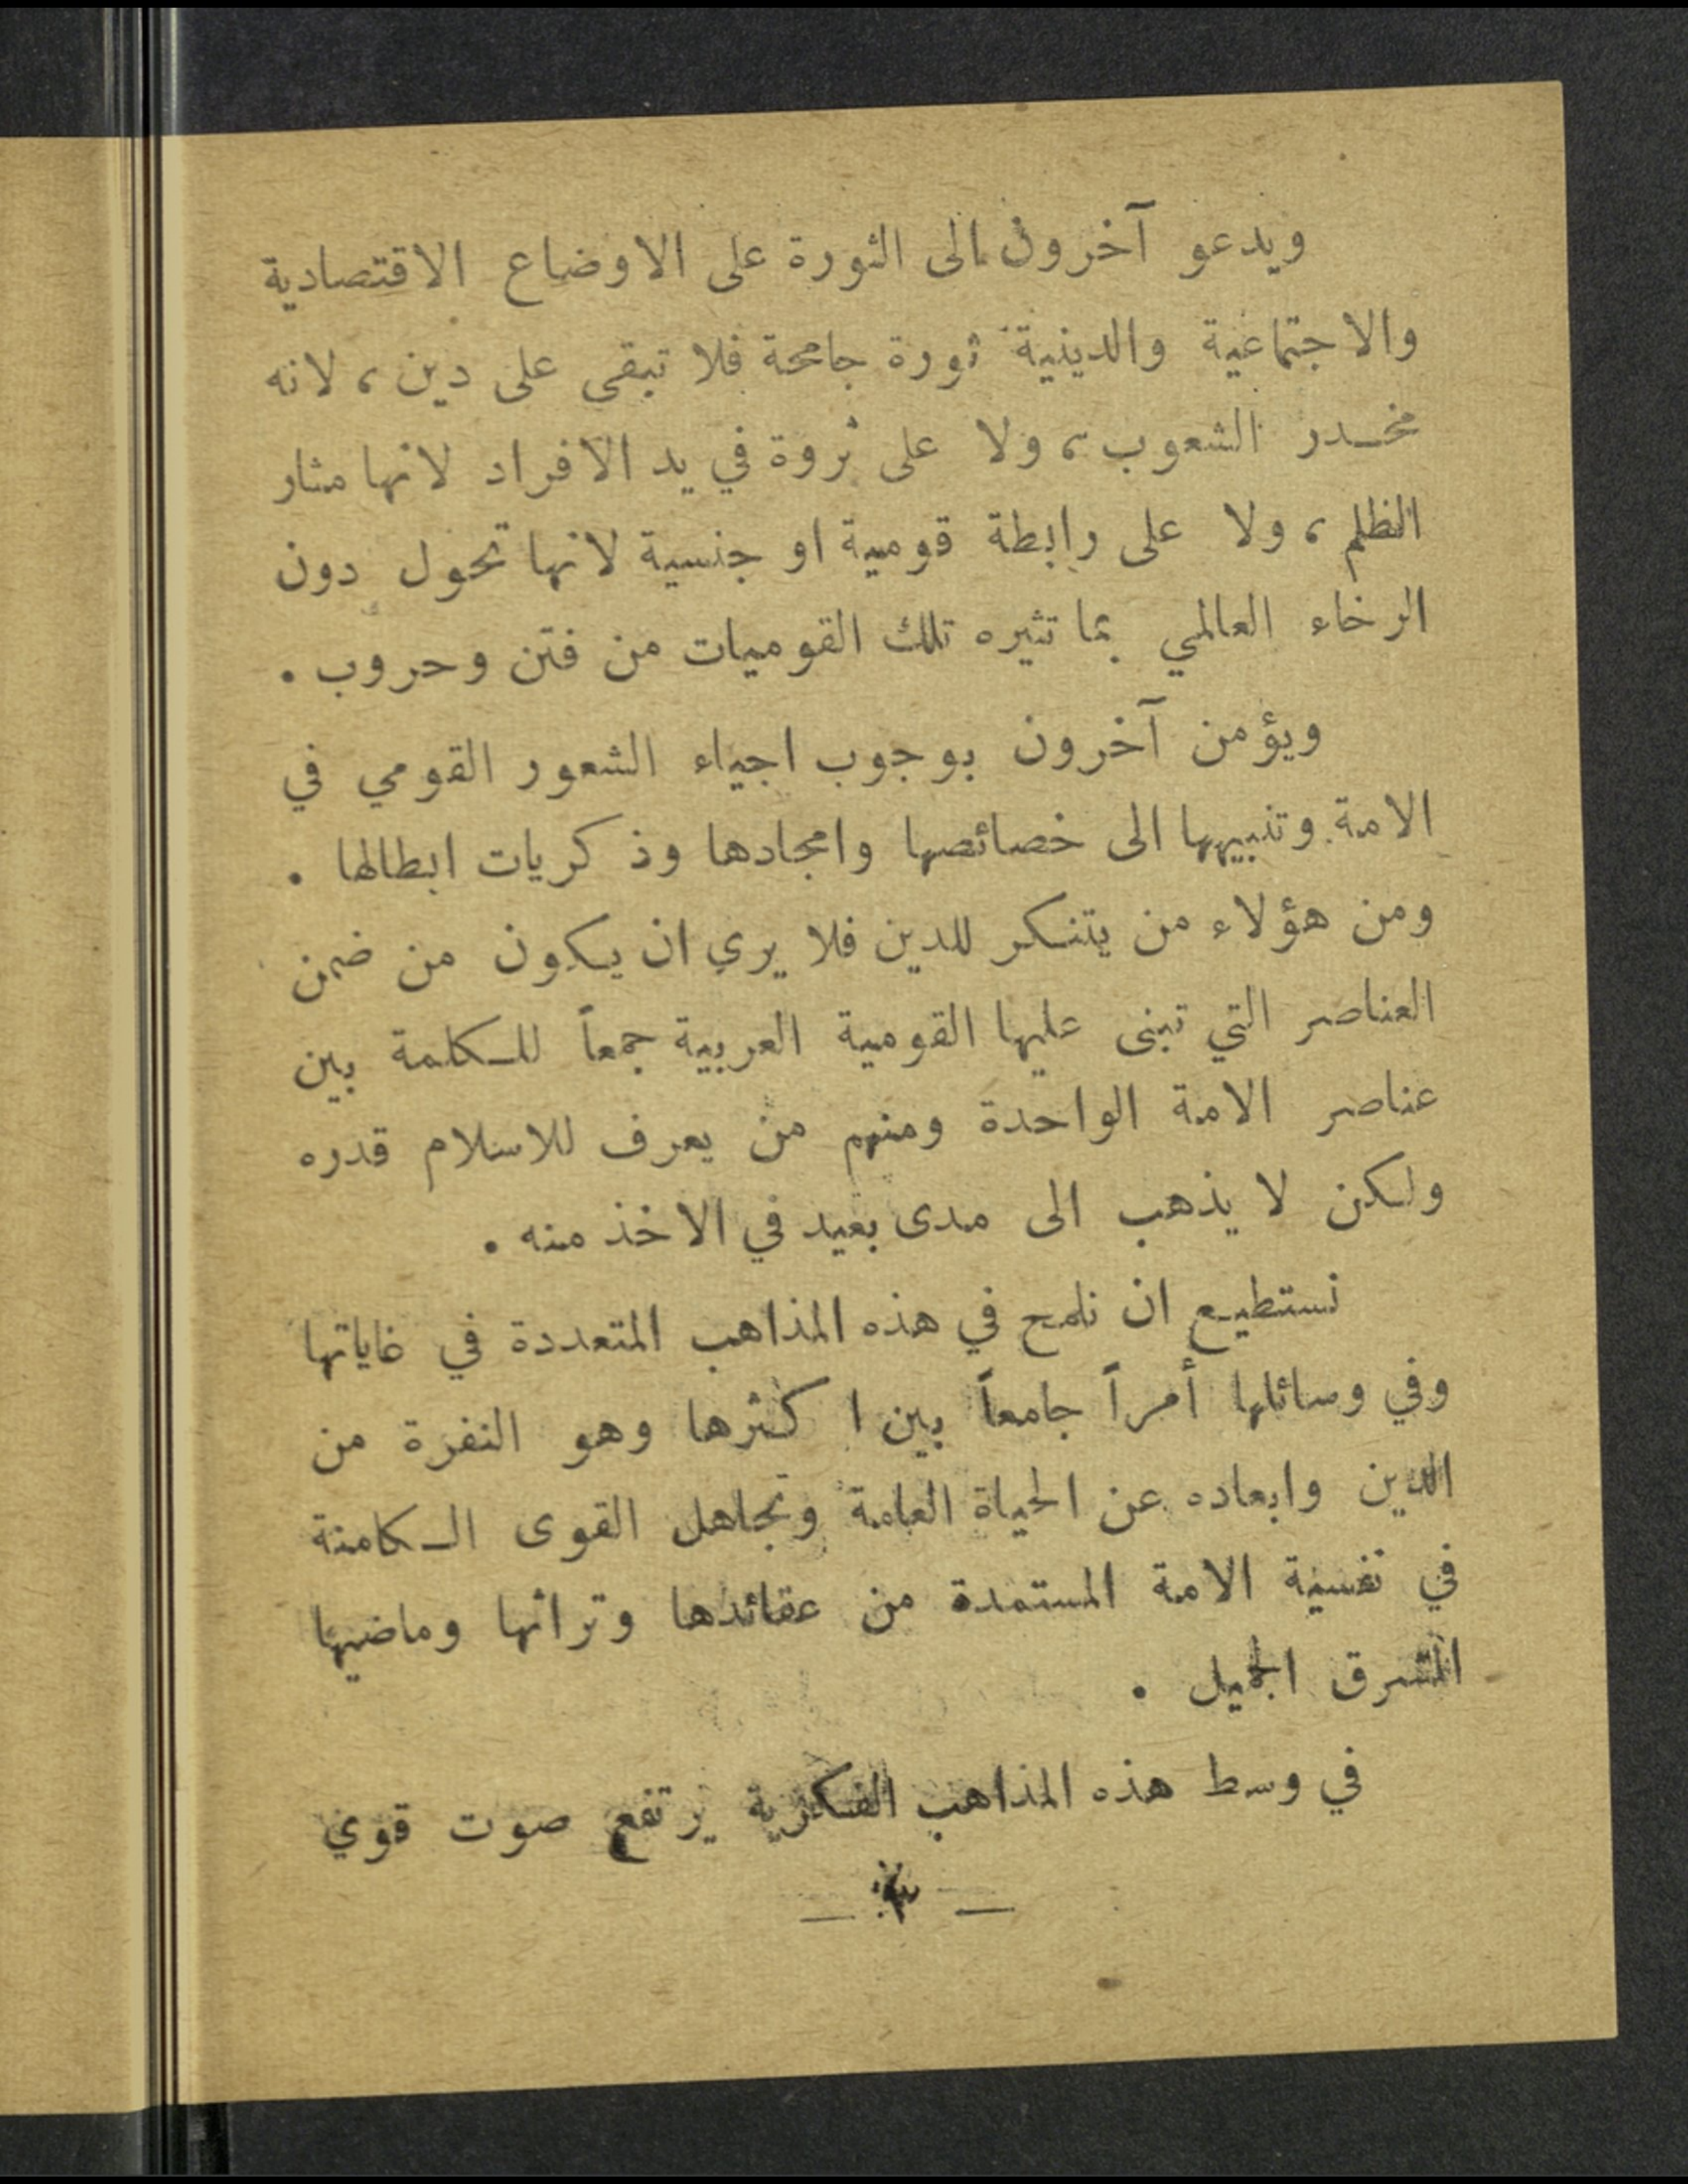 ويدعو آخرون الى الثورة على الاوضاع الاقتصادية
والاجتماعية والدينية ثورة جامحة فلا تبقى على دين ، لانه
مخدر الشعوب ، ولا على ثروة في يد الافراد لانها مثار
الظلم ، ولا على رابطة قومية او جنسية لانها تحول دون
الرخاء العالمي بما تثيره تلك القوميات من فتن وحروب .
ويؤمن آخرون بوجوب احياء الشعور القومي في
الامة وتنبيهها الى خصائصها وامجادها وذكريات ابطالها .
ومن هؤلاء من يتنكر للدين فلا يرى ان يكون من ضمن
العناصر التي تبنى عليها القومية العربية جمعاً للكلمة بين
عناصر الامة الواحدة ومنهم من يعرف للاسلام قدره
ولكن لا يذهب الى مدى بعيد في الاخذ منه .
نستطيع ان نلمح في هذه المذاهب المتعددة في غاياتها
وفي وسائلها أمراً جامعاً بين اكثرها وهو النفرة من
الدين وابعاده عن الحياة العامة وتجاهل القوى الكامنة
في نفسية الامة المستمدة من عقائدها وتراثها وماضيها
المشرق الجميل .
في وسط هذه المذاهب الفكرية يرتفع صوت قوي